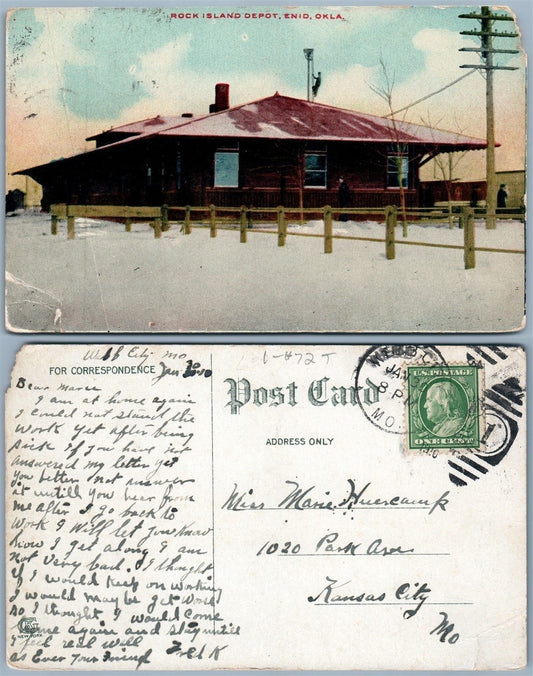 ROCK ISLAND DEPOT, ENID, OKLA.
Webb City Mo
FOR CORRESPONDENCE Jan 30-10
1-H72T
Post Card
ADDRESS ONLY
Dear Marie
I am at home again
I could not stand the
work yet after being
sick if you have not
answered my letter yet
you better not answer
it untill you hear from
me after I go back to
work I will let you know
how I get along I am
not very bad. I thought
if I would keep on working
I would may be get worse
so I thought I would come
home again and stay untill
I feel real well
as Ever Your Friend
WEBB
JAN
8 P
MO.
U.S. POSTAGE
ONE CENT
Miss Marie Huercamp
1020 Park Ave
Kansas City
Mo
NEW YORK